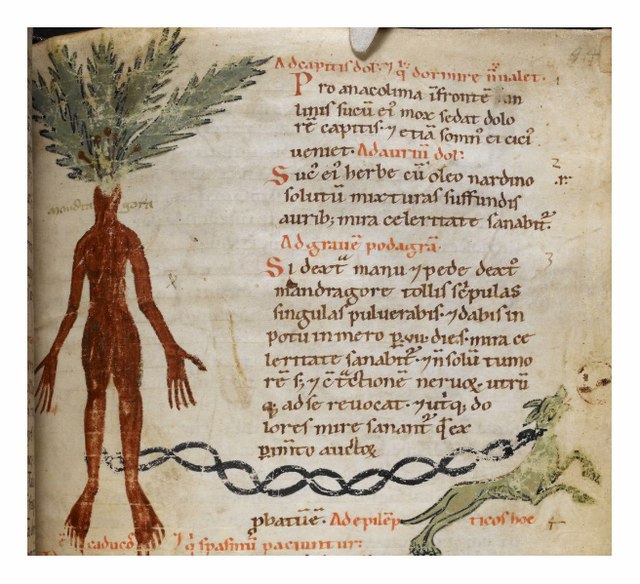 Ad capitis dol', ⁊ q̄ dormire n̄ ualet.
Pro anacolima in fronte
linis sucū ei' mox sedat dolo
rē capitis. ⁊ etiā somn' ei cici'
ueniet. Ad auriū dol'.
Suc' ei' herbe cū oleo nardino
solutū mixturas suffundis
aurib; mira celeritate sanabit'.
Ad grauē podagrā.
Si dext̄ manu ⁊ pede dext'
mandragore tollis scrpulas
singulas puluerabis. ⁊ dabis in
potu in mero p̱ .uii. dies. mira ce
leritate sanabit'. ⁊ n̄ solū tumo
rē s; ⁊ cͣctionē neruoꝝ. utrū
q; ad se reuocat. ⁊ ut'q; do
lores mire sanant' ex
p̱im̄to auctoꝝ
p̱batū ē. Ad epilēp
ticos hoc
mandra gora
caduc q̄ spasmū paciuntur:
2
3
4